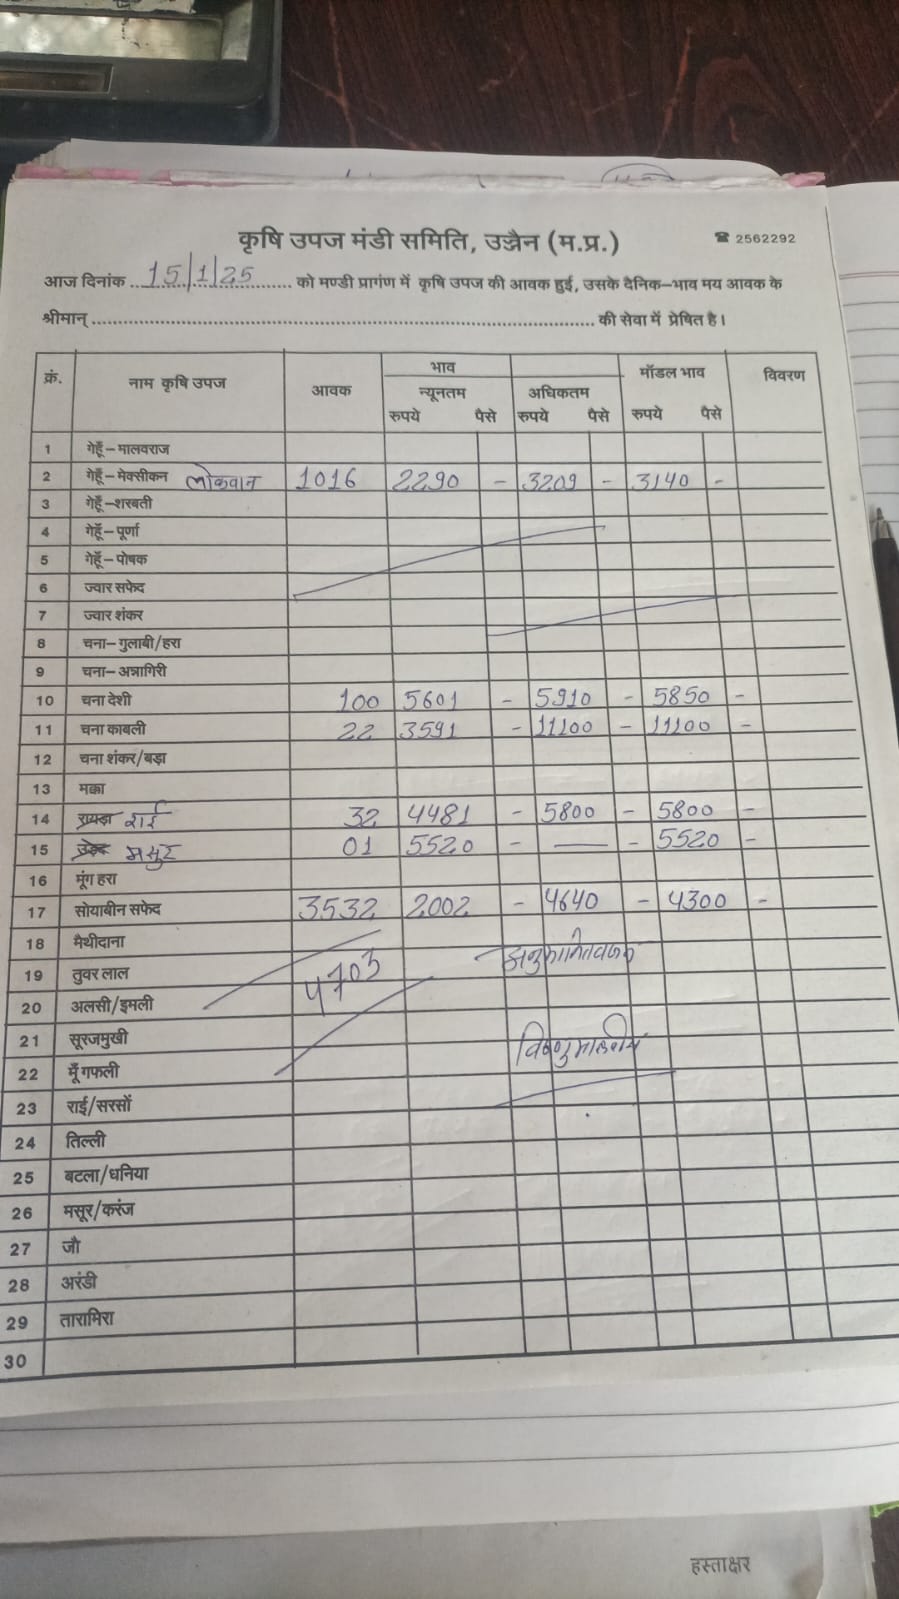 कृषि उपज मंडी समिति, उज्जैन (म.प्र.) ☎ 2562292
आज दिनांक 15/1/25 को मण्डी प्रागंण में कृषि उपज की आवक हुई, उसके दैनिक-भाव मय आवक के
श्रीमान् की सेवा में प्रेषित है।
क्रं. नाम कृषि उपज आवक भाव मॉडल भाव विवरण
न्यूनतम अधिकतम
रुपये पैसे रुपये पैसे रुपये पैसे
1 गेहूँ-मालवराज
2 गेहूँ-मेक्सीकन लोकवान 1016 2290 - 3209 - 3140 -
3 गेहूँ-शरबती
4 गेहूँ-पूर्णा
5 गेहूँ-पोषक
6 ज्वार सफेद
7 ज्वार शंकर
8 चना-गुलाबी/हरा
9 चना-अन्नागिरी
10 चना देशी 100 5601 - 5910 - 5850 -
11 चना काबली 22 3591 - 11100 - 11100 -
12 चना शंकर/बड़ा
13 मक्का
14 रायड़ा राई 32 4481 - 5800 - 5800 -
15 मसुर 01 5520 - — - 5520 -
16 मूंग हरा
17 सोयाबीन सफेद 3532 2002 - 4640 - 4300 -
18 मैथीदाना
19 तुवर लाल 4703
20 अलसी/इमली
21 सूरजमुखी
22 मूँगफली
23 राई/सरसों
24 तिल्ली
25 बटला/धनिया
26 मसूर/करंज
27 जौ
28 अरंडी
29 तारामिरा
30
हस्ताक्षर